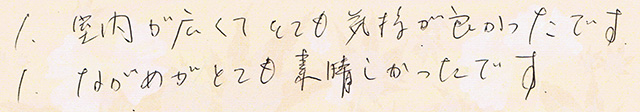 1. 室内が広くてとても気持が良かったです
1. ながめがとても素晴しかったです.